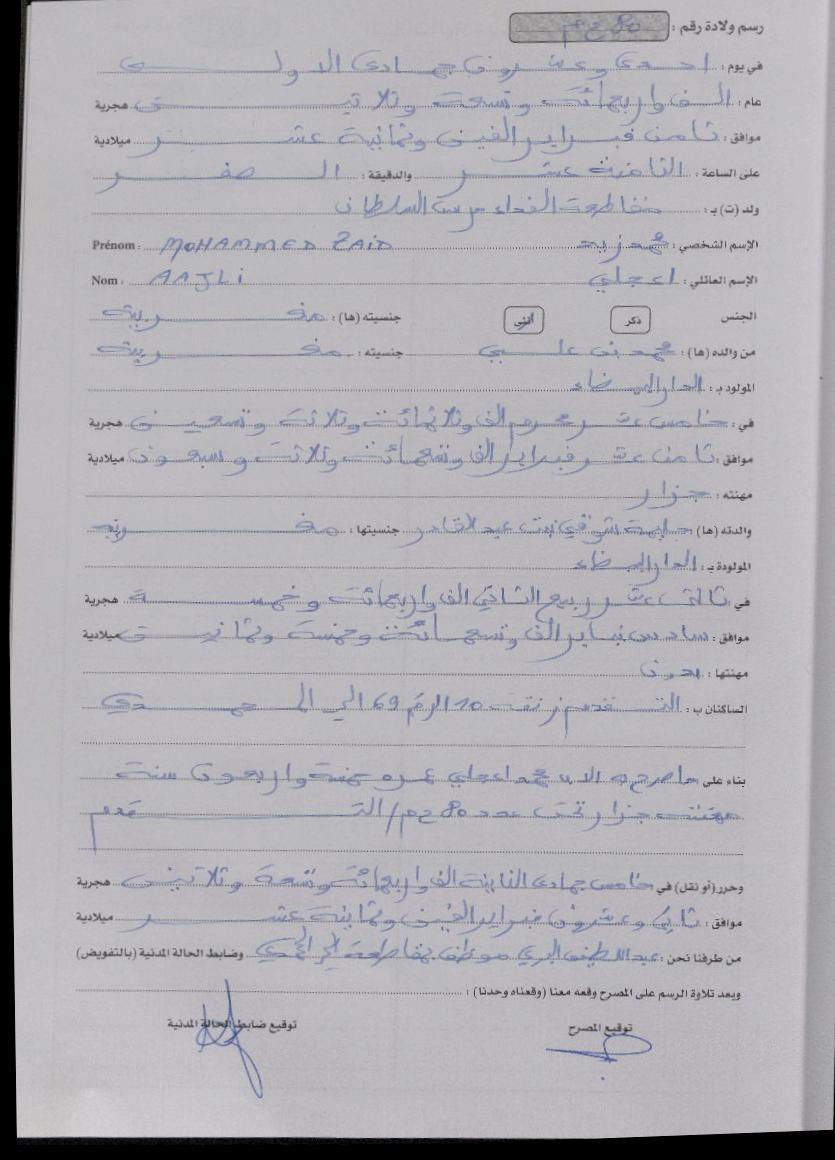 رسم ولادة رقم :
في يوم : احدى وعشرون جمادى الاولى
عام : الف واربعمائة وتسعة وثلاثين هجرية
موافق : ثامن فبراير الفين وثمانية عشر ميلادية
على الساعة : الثامنة عشر والدقيقة : الصفر
ولد (ت) بـ : مقاطعة الفداء مرس السلطان
الإسم الشخصي : محمد زيد Prénom : MOHAMMED ZAID
الإسم العائلي : اعجلي Nom : AAJLi
الجنس ذكر أنثى جنسيته (ها) : مغربية
من والده (ها) : محمد بن علي جنسيته : مغربية
المولود بـ : الدار البيضاء
في : خامس عشر محرم الف وثلاثمائة وثلاثة وتسعين هجرية
موافق : ثامن عشر فبراير الف وتسعمائة وثلاثة وسبعون ميلادية
مهنته : جزار
والدته (ها) حليمة شوقي بنت عبد القادر جنسيتها : مغربية
المولودة بـ : الدار البيضاء
في : ثالث عشر ربيع الثاني الف واربعمائة وخمسة هجرية
موافق : سادس يناير الف وتسعمائة وخمسة وثمانين ميلادية
مهنتها : بدون
الساكنان ب : التقدم زنقة 10 الرقم 69 الحي المحمدي
بناء على ما صرح به الاب محمد اعجلي عمره خمسة واربعون سنة
مهنته جزار تحت عدد 80 ح م / التقدم
وحرر (أو نقل) في خامس جمادى الثانية الف واربعمائة وتسعة وثلاثين هجرية
موافق : ثاني وعشرون فبراير الفين وثمانية عشر ميلادية
من طرفنا نحن : عبد اللطيف موظف بمقاطعة الحي المحمدي وضابط الحالة المدنية (بالتفويض)
وبعد تلاوة الرسم على المصرح وقعه معنا (وقعناه وحدنا) :
توقيع المصرح توقيع ضابط الحالة المدنية